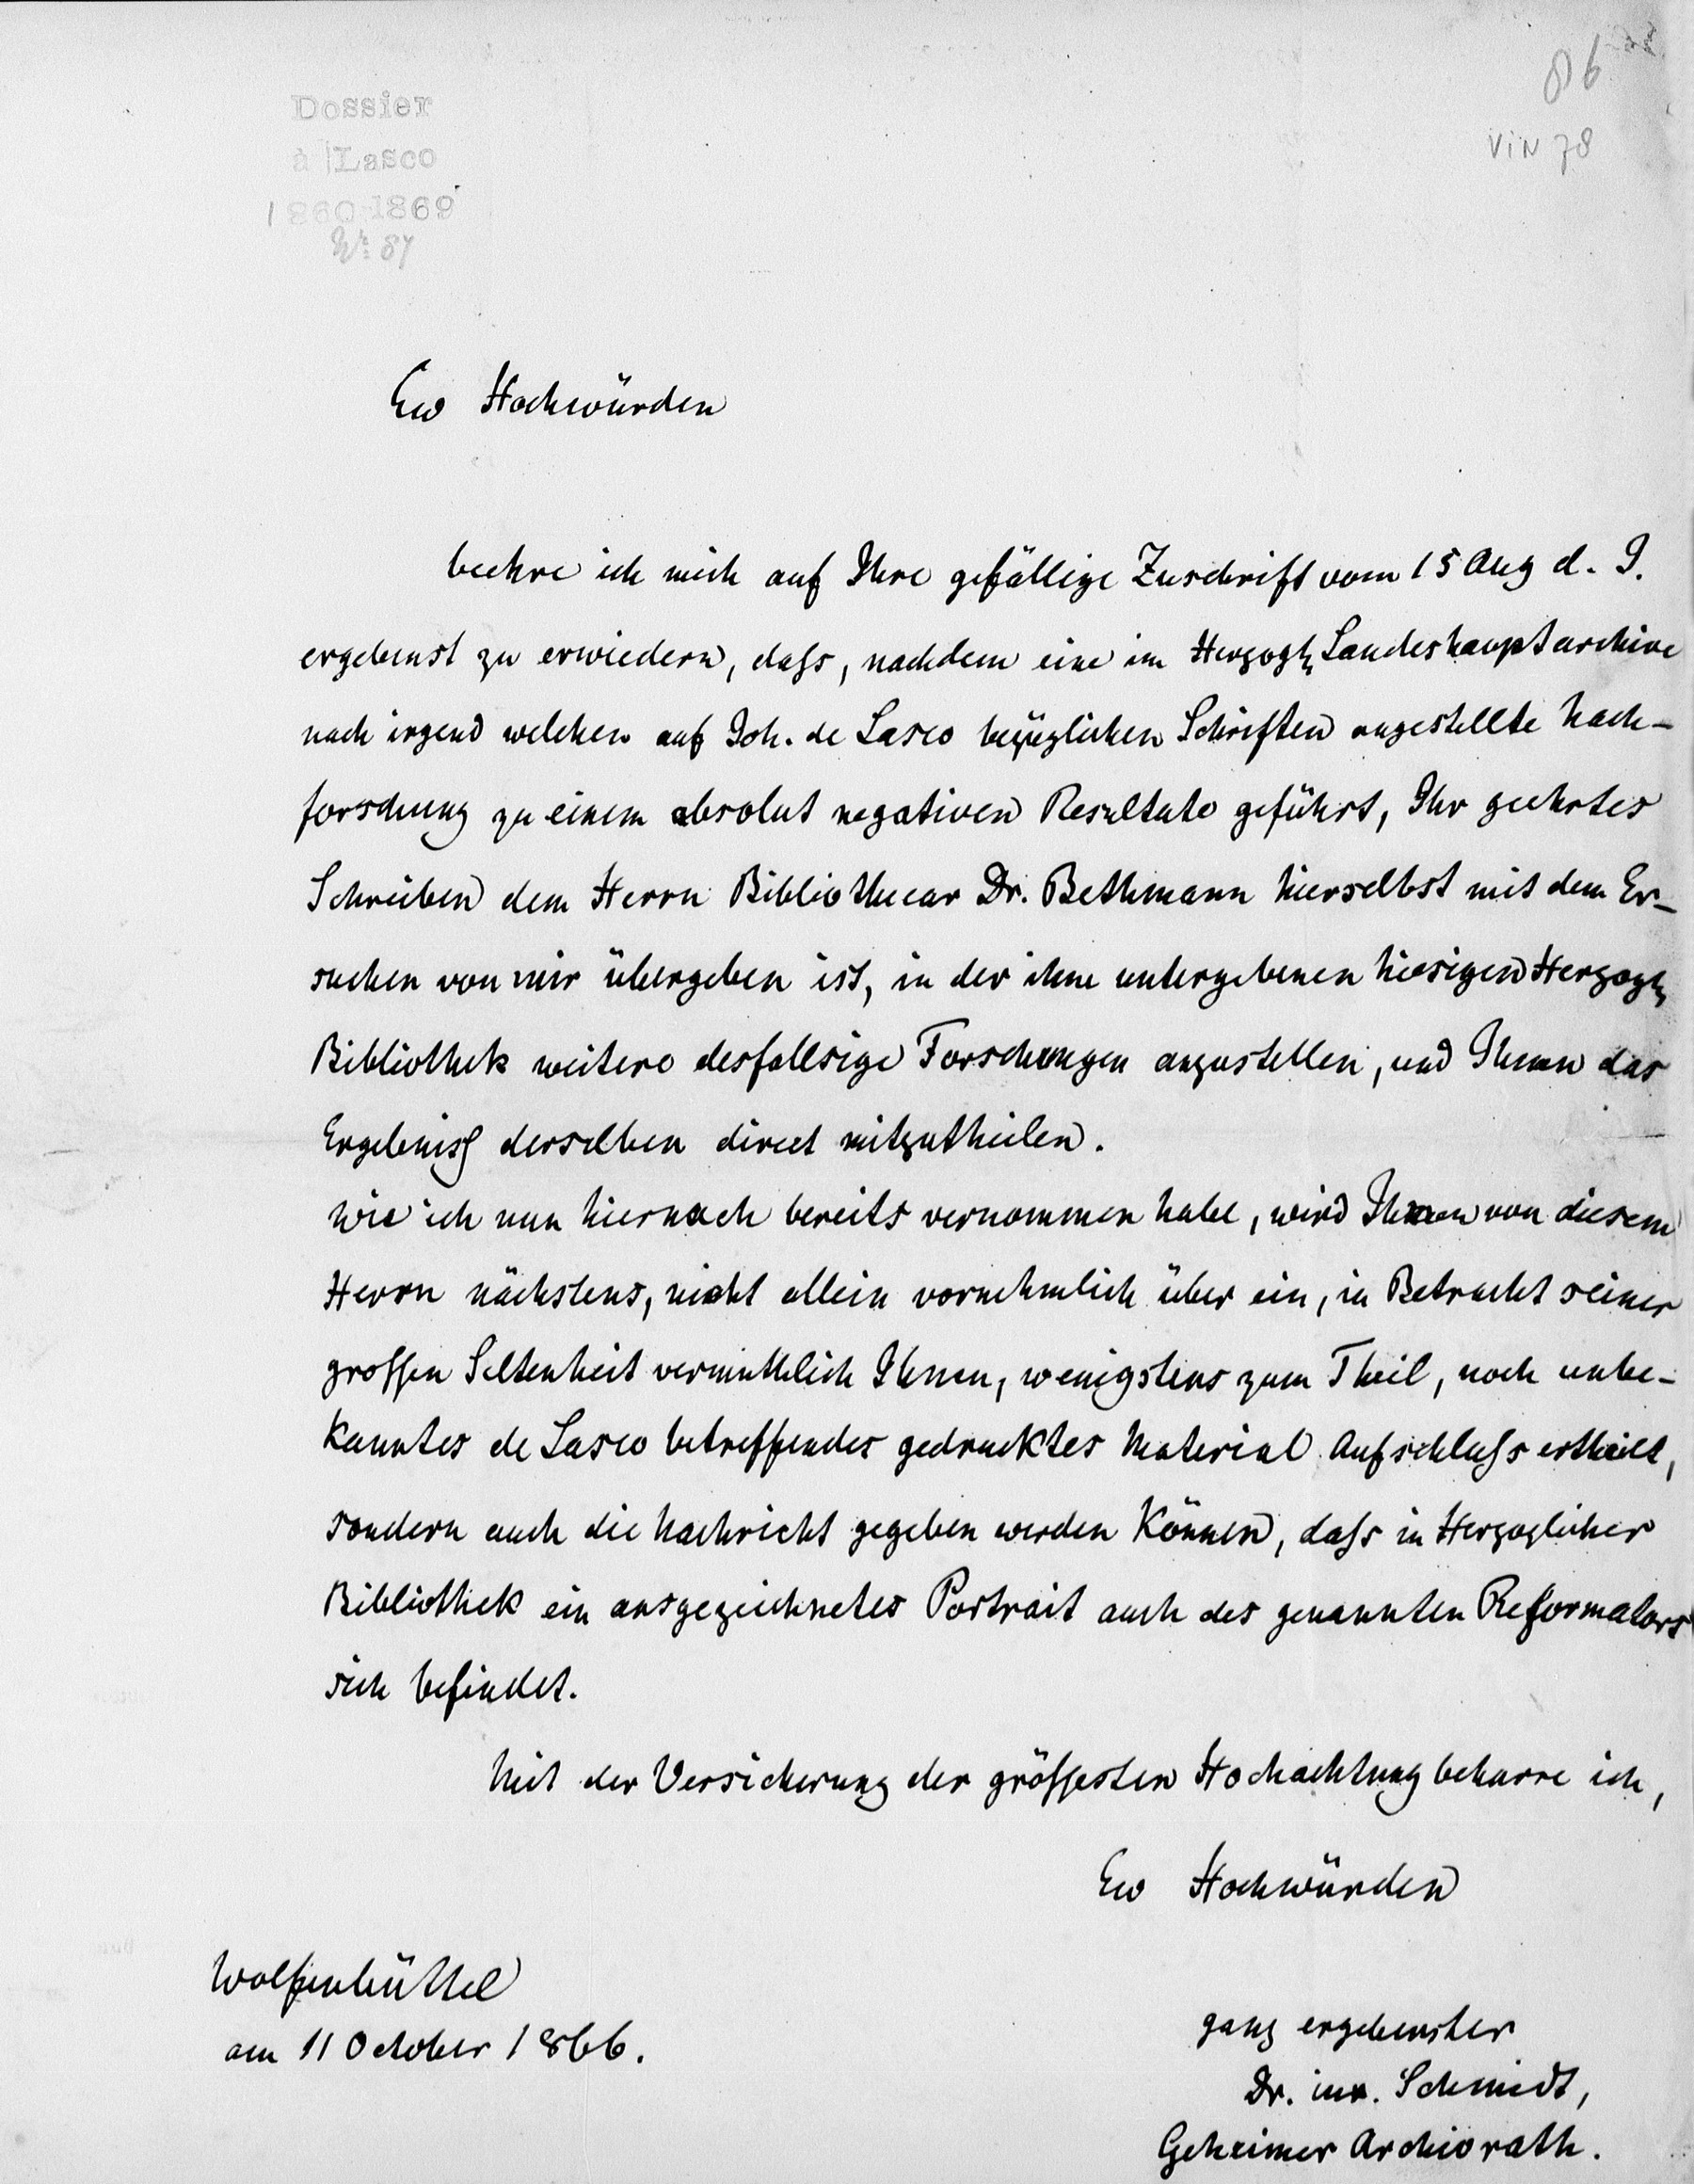 86
VIN 78
Dossier
à Lasco
1860-1869
Nr: 87
Ew Hochwürden
beehre ich mich auf Ihre gefällige Zuschrift vom 15 Aug d. J.
ergebenst zu erwiedern, daſs, nachdem eine im Herzogl. Landeshauptarchive
nach irgend welchen auf Joh. de Lasco bezüglichen Schriften angestellte Nach-
forschung zu einem absolut negativen Resultate geführt, Ihr geehrtes
Schreiben dem Herrn Bibliothecar Dr. Bethmann hierselbst mit dem Er-
suchen von mir übergeben ist, in der ihm untergebenen hiesigen Herzogl.
Bibliothek weitere desfallsige Forschungen anzustellen, und Ihnen das
Ergebniſs derselben direct mitzutheilen.
Wie ich nun hiernach bereits vernommen habe, wird Ihnen von diesem
Herrn nächstens, nicht allein vornehmlich über ein, in Betracht seiner
groſsen Seltenheit vermuthlich Ihnen, wenigstens zum Theil, noch unbe-
kanntes de Lasco betreffendes gedrucktes Material Aufschluſs ertheilt,
sondern auch die Nachricht gegeben werden können, daſs in Herzoglicher
Bibliothek ein ausgezeichnetes Portrait auch des genannten Reformators
sich befindet.
Mit der Versicherung der gröſsesten Hochachtung beharre ich,
Ew Hochwürden
Wolfenbüttel
am 11 October 1866.
ganz ergebenster
Dr. iur. Schmidt,
Geheimer Archivrath.